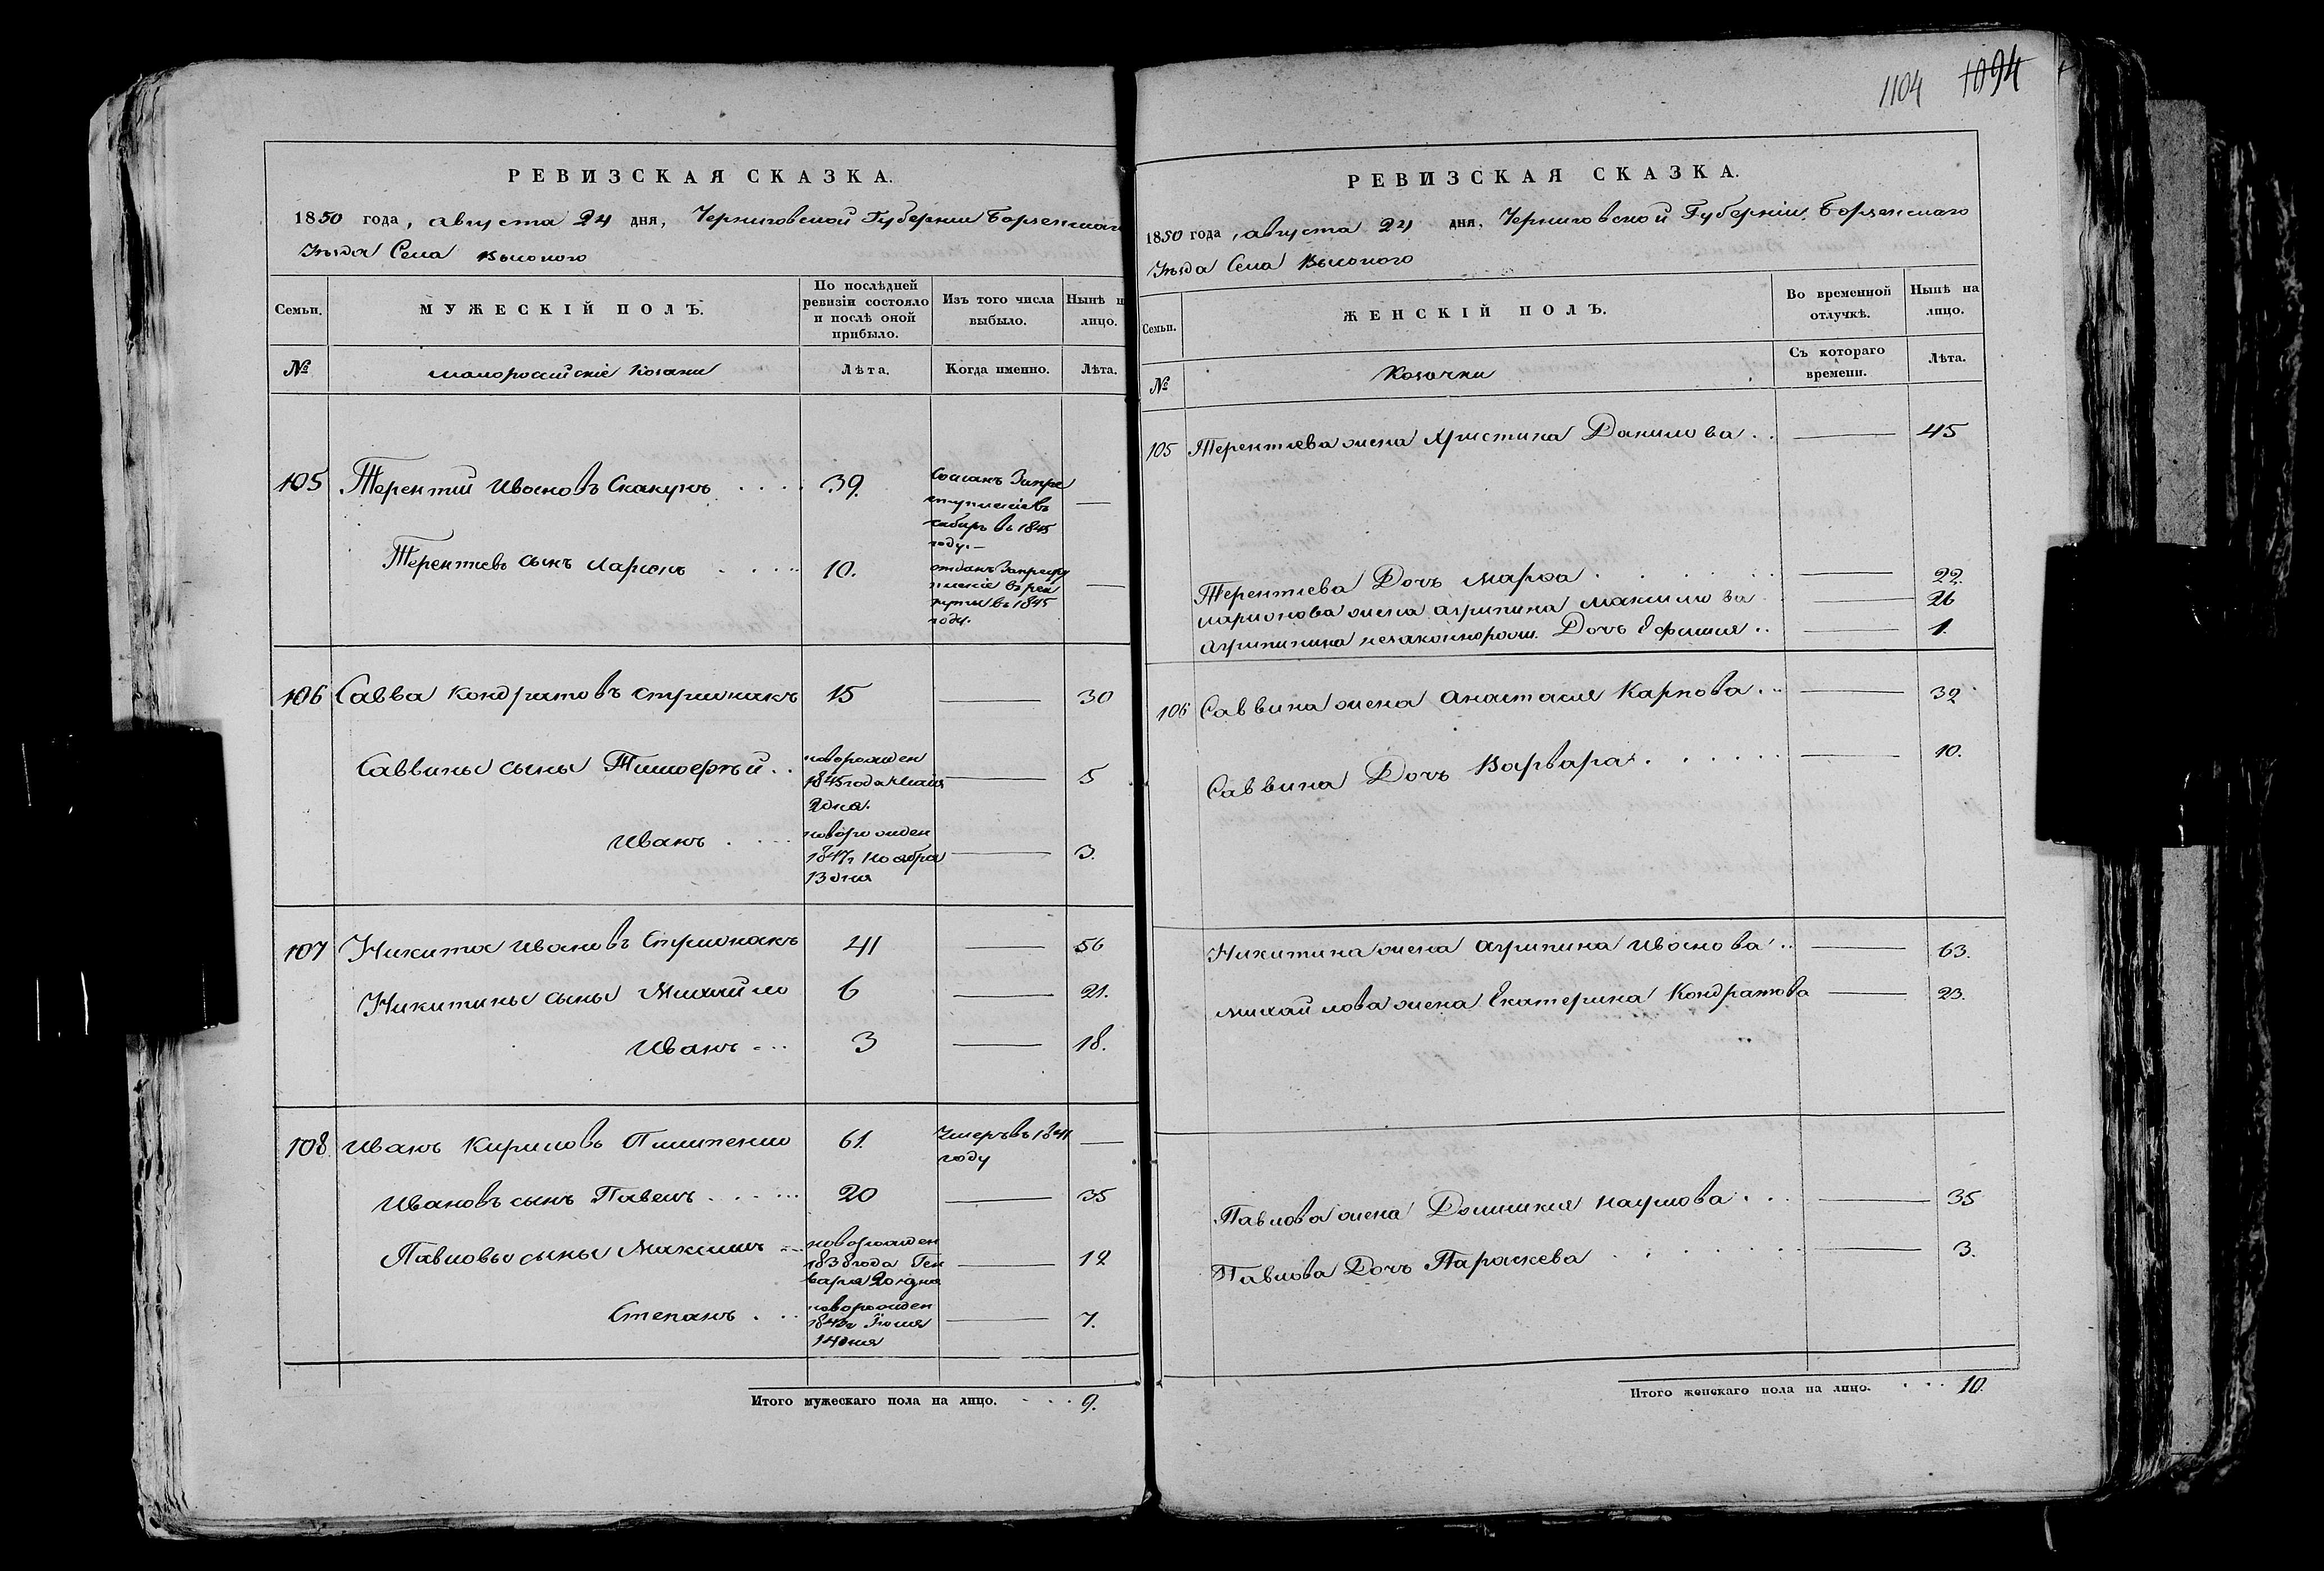 РЕВИЗСКАЯ СКАЗКА.
1850 года, августа 24 дня, Черниговской Губернии Борзенскаго
Уѣзда Села Высокого
Семьи.
МУЖЕСКІЙ ПОЛЪ.
По послѣдней ревизіи состояло и послѣ оной прибыло.
Изъ того числа выбыло.
Нынѣ н лицо.
№
малороссийскіе козаки
Лѣта.
Когда именно.
Лѣта.
105 Терентий Ивановъ Скакунъ 39. Сосланъ Запре
ступленіе въ
сибирь въ 1845
году. —
Терентіевъ сынъ Ларионъ 10. отданъ Запресту
пленіе в рек
руты въ 1845
году. —
106 Савва Кондратовъ 15 — 30
Саввины сыны Тимоѳей новорожден
1845 года Мая
2 дня. — 5
Иванъ новорожден
1847 г Ноября
13 дня — 3.
107 Никита Ивановъ 41 — 56
Никитины сыны Михайло 6 — 21.
Иванъ 3 — 18.
108 Иванъ Кириловъ Пилипенко 61. Умеръ въ 1841
году —
Ивановъ сынъ Павелъ 20 — 35
Павловы сыны Максимъ новорожден
1838 года Ген
варя 20 дня — 12
Степанъ новорожден
1843 г Іюля
14 дня — 7.
Итого мужескаго пола на лицо. 9.
1104 1094
РЕВИЗСКАЯ СКАЗКА.
1850 года, августа 24 дня, Черниговской Губерніи Борзенскаго
Уѣзда Села Высокого
Семьи.
ЖЕНСКІЙ ПОЛЪ.
Во временной отлучкѣ.
Нынѣ на лицо.
№
Козачки
Съ котораго времени.
Лѣта.
105 Терентіева жена Христина Данилова — 45
Терентіева Дочь Марѳа — 22.
Ларионова жена Агрипина Максимова — 26
Агрипинина незаконнорож. Дочь Ефимия — 1.
106 Саввина жена Анастасия Карпова — 32
Саввина Дочь Варвара — 10.
Никитина жена Агрипина Иванова — 63.
Михайлова жена Екатерина Кондратова — 23.
Павлова жена Домникия Наумова — 35
Павлова Дочь Параскева — 3.
Итого женскаго пола на лицо. 10.